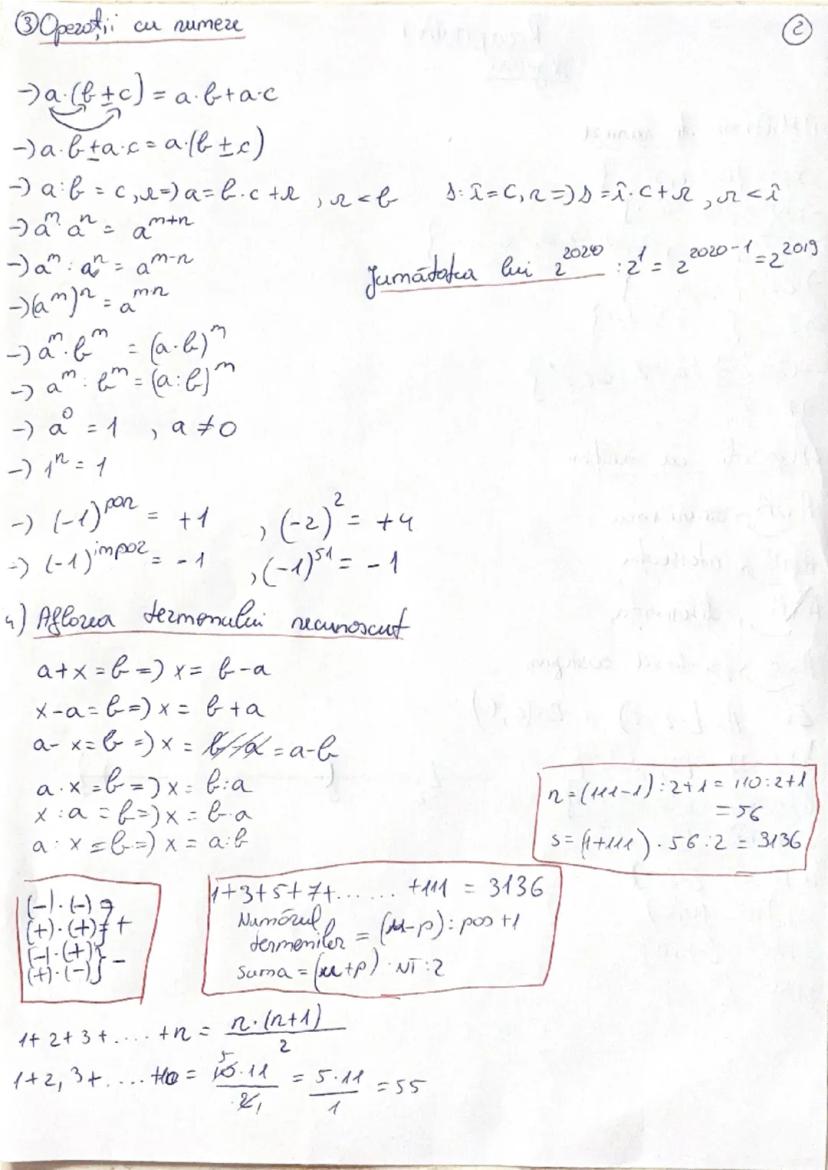 ③ Operații cu numere
2
→ a·(b±c) = a·b+a·c
→ a·b±a·c = a·(b±c)
→ a:b = c,r => a = b·c+r , r<b    D:î = C, r => D = î·C+r , r<î
→ a^m · a^n = a^(m+n)
→ a^m : a^n = a^(m-n)
Jumătatea lui 2^2020 : 2^1 = 2^(2020-1) = 2^2019
→ (a^m)^n = a^(m·n)
→ a^m · b^m = (a·b)^m
→ a^m : b^m = (a:b)^m
→ a^0 = 1 , a≠0
→ 1^n = 1
→ (-1)^par = +1 , (-2)^2 = +4
→ (-1)^impar = -1 , (-1)^51 = -1
4) Aflarea termenului necunoscut
a+x = b => x = b-a
x-a = b => x = b+a
a-x = b => x = = a-b
a·x = b => x = b:a
x:a = b => x = b·a
a:x = b => x = a:b
n = (111-1):2+1 = 110:2+1
= 56
S = (1+111)·56:2 = 3136
(-)·(-)
(+)·(+) } +
(-)·(+)
(+)·(-) } -
1+3+5+7+......+111 = 3136
Numărul
termenilor = (u-p):pas+1
Suma = (u+p)·NT:2
1+2+3+....+n = n·(n+1)/2
1+2,3+....+10 = 10·11/2 = 5·11/1 = 55